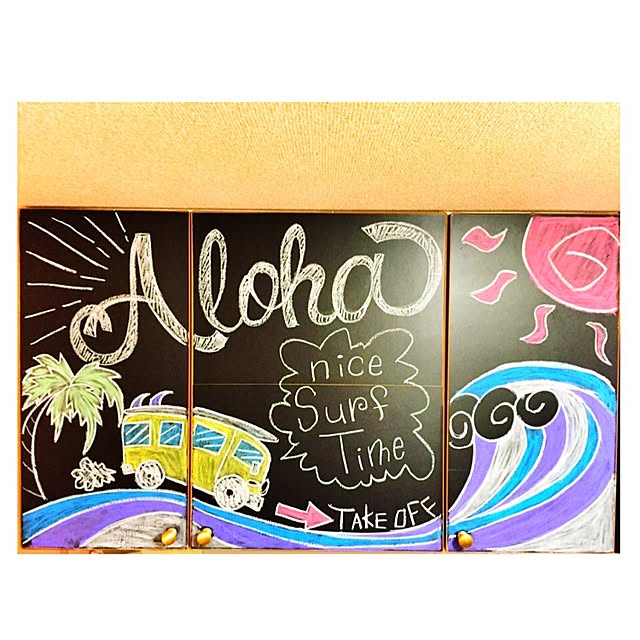 Aloha
nice
Surf
Time
TAKE OFF